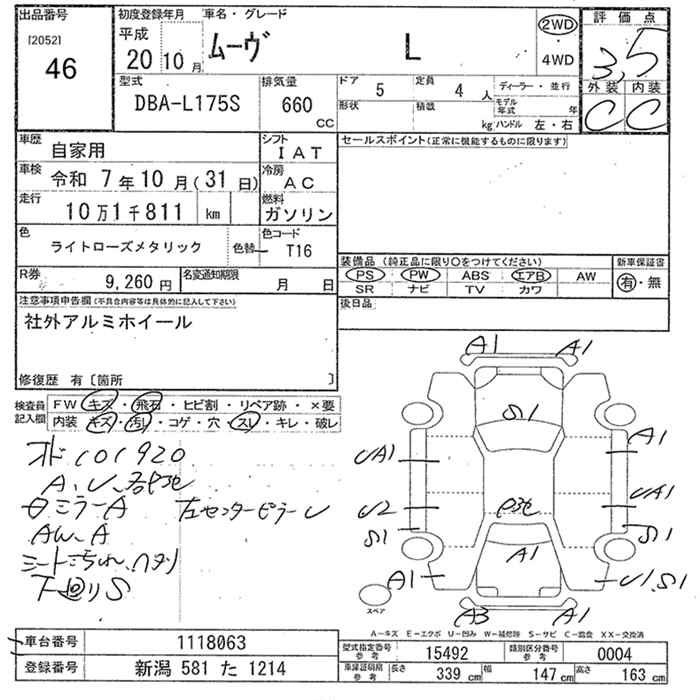 出品番号
[2052]
46
初度登録年月
平成
20年10月
車名・グレード
ムーヴ L
2WD
・
4WD
評価点
3.5
外装 内装
C C
型式
DBA-L175S
排気量
660
CC
ドア 5 定員 4 人
形状 積載 kg
ディーラー・並行
モデル年式 年
ハンドル 左・右
車歴
自家用
シフト
IAT
セールスポイント(正常に機能するものに限ります)
車検
令和 7年10月(31日)
冷房
AC
走行
10万1千811 km
燃料
ガソリン
色
ライトローズメタリック
色替
色コード
T16
装備品(純正品に限り○をつけてください)
PS PW ABS エアB AW
SR ナビ TV カワ
新車保証書
有・無
R券
9,260円
名変通知期限
月 日
後日品
注意事項申告欄(不具合内容等は具体的に記入して下さい)
社外アルミホイール
修復歴 有〔箇所 〕
検査員
記入欄
FW キズ・飛石・ヒビ割・リペア跡・×要
内装 キズ・汚レ・コゲ・穴・スレ・キレ・破レ
101920
ミラーA 左センターピラーU
下回りS
A1 A1
S1
A1
UA1
UA1
U2
S1
S1
A1
A1
U1.S1
A3 A1
スペア
A-キズ E-エクボ U-凹み W-補修跡 S-サビ C-腐食 XX-交換済
車台番号
1118063
型式指定番号
参考
15492
類別区分番号
参考
0004
登録番号
新潟 581 た 1214
車庫証明用
参考
長さ 339 cm 幅 147 cm 高さ 163 cm